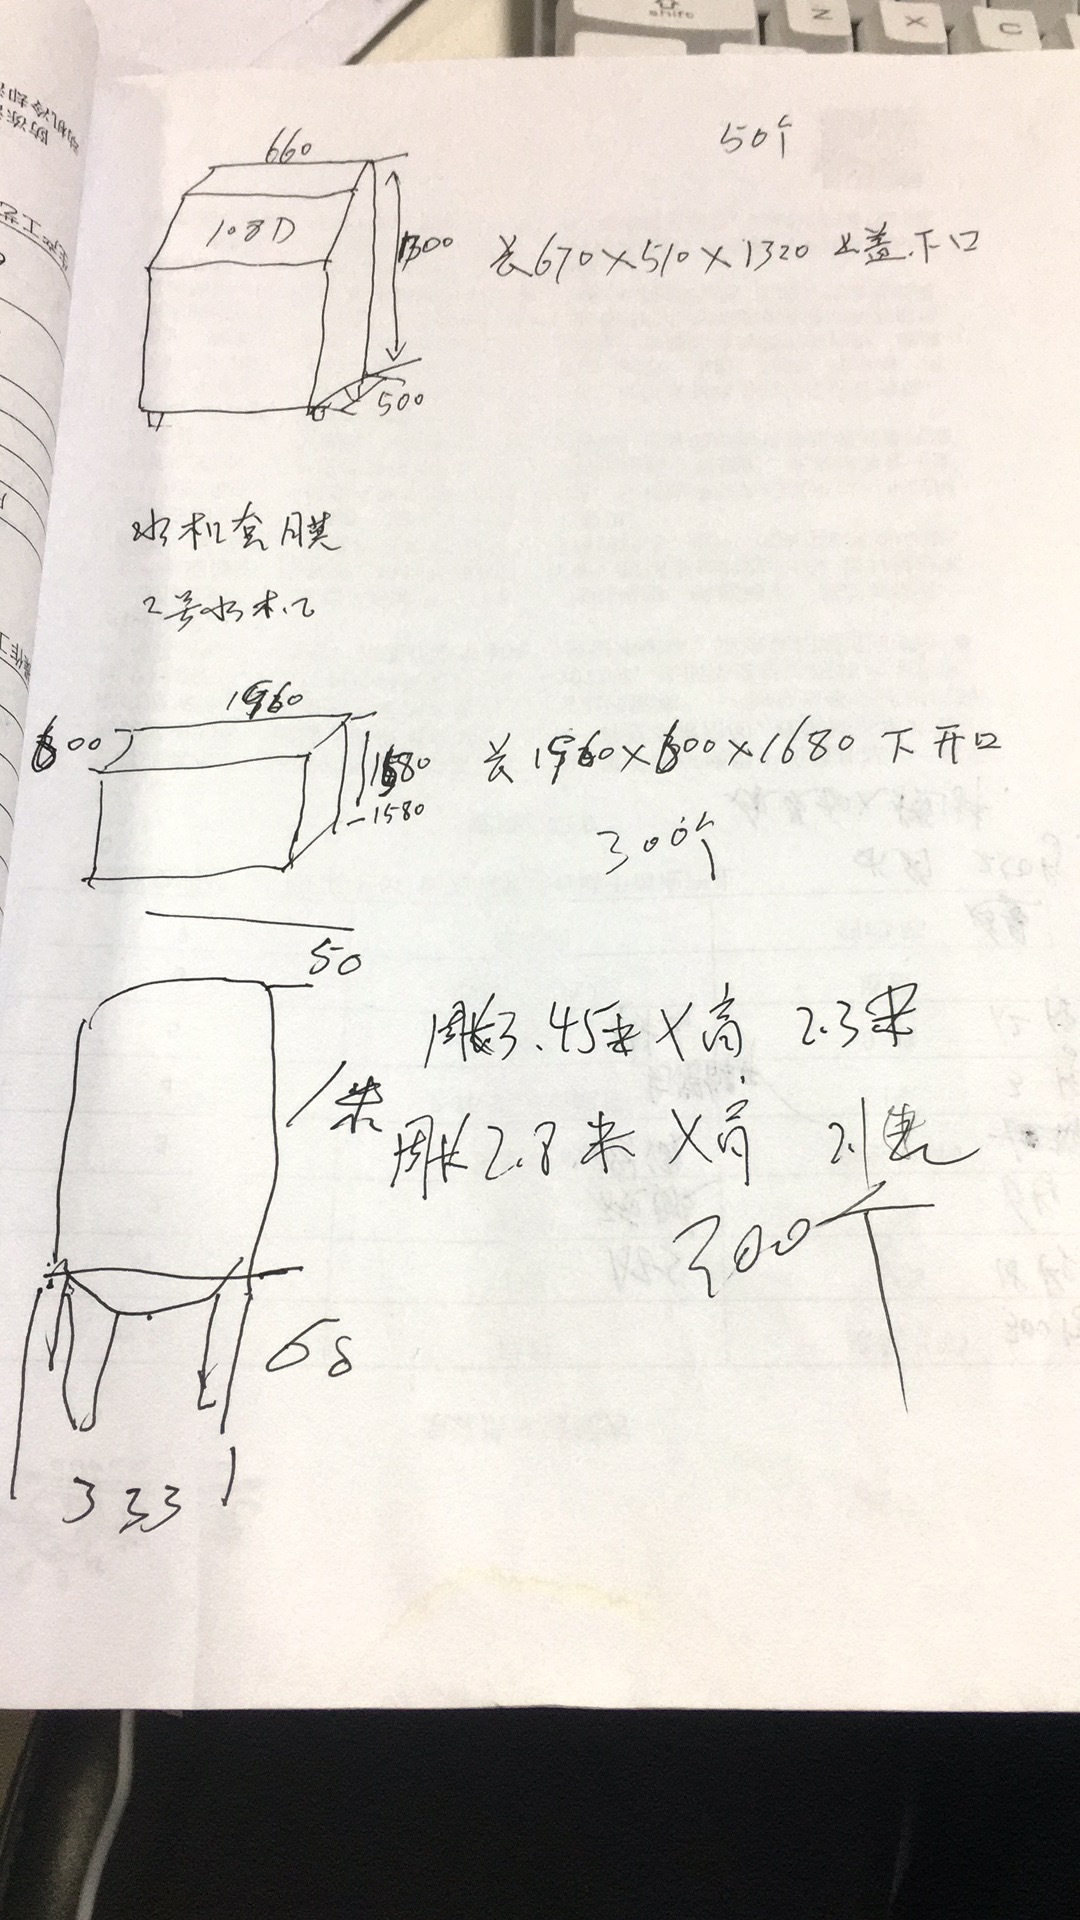 shift
Z
X
C
50个
660
108D
1300
长670×510×1320 上盖.下口
500
水机套膜
2号水机
1960
600
1680
长1960×600×1680 下开口
-1580
300个
50
周长3.45米×高 2.3米
1米
周长2.8米×高 2.1
300个
68
333